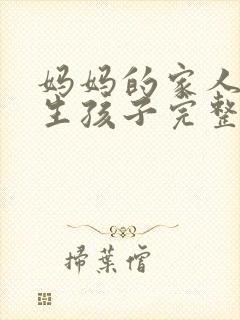 妈妈的家人
生孩子完整
掃葉僧